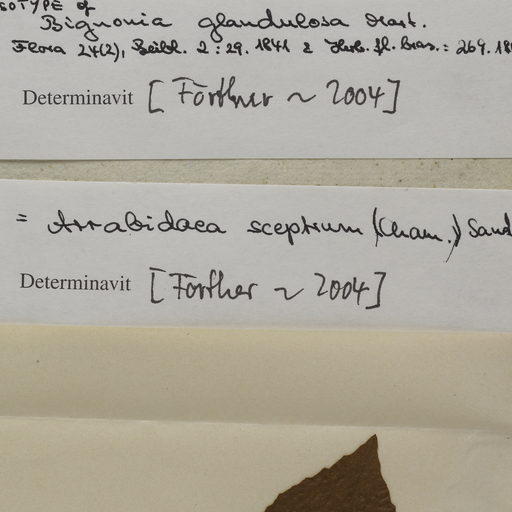 SOTYPE of
Bignonia glandulosa Mart.
Flora 24(2), Beibl. 2 : 29. 1841 & Herb. fl. bras. : 269. 18
Determinavit [Förther ~ 2004]
= Arrabidaea sceptrum (Cham.) Sand
Determinavit [Förther ~ 2004]